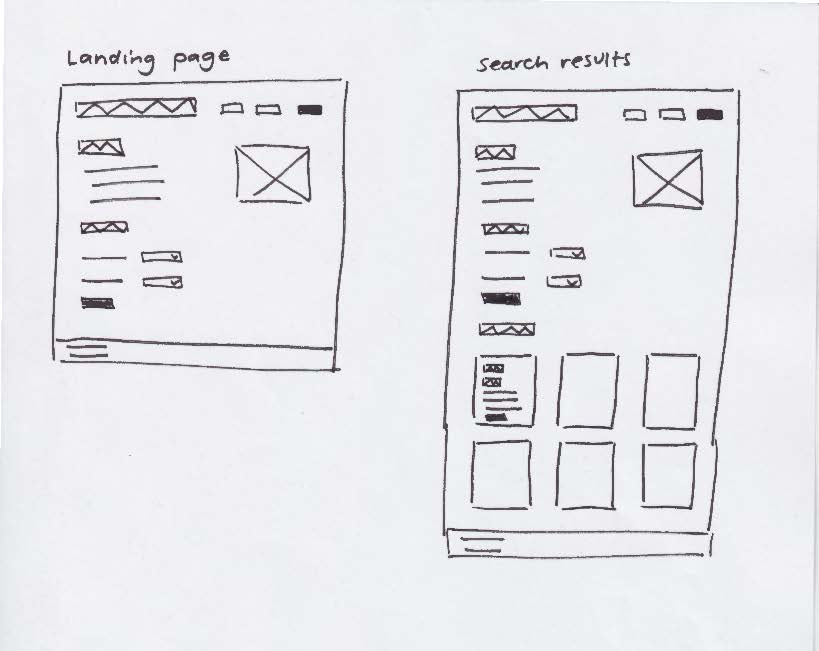 Landing page
Search results